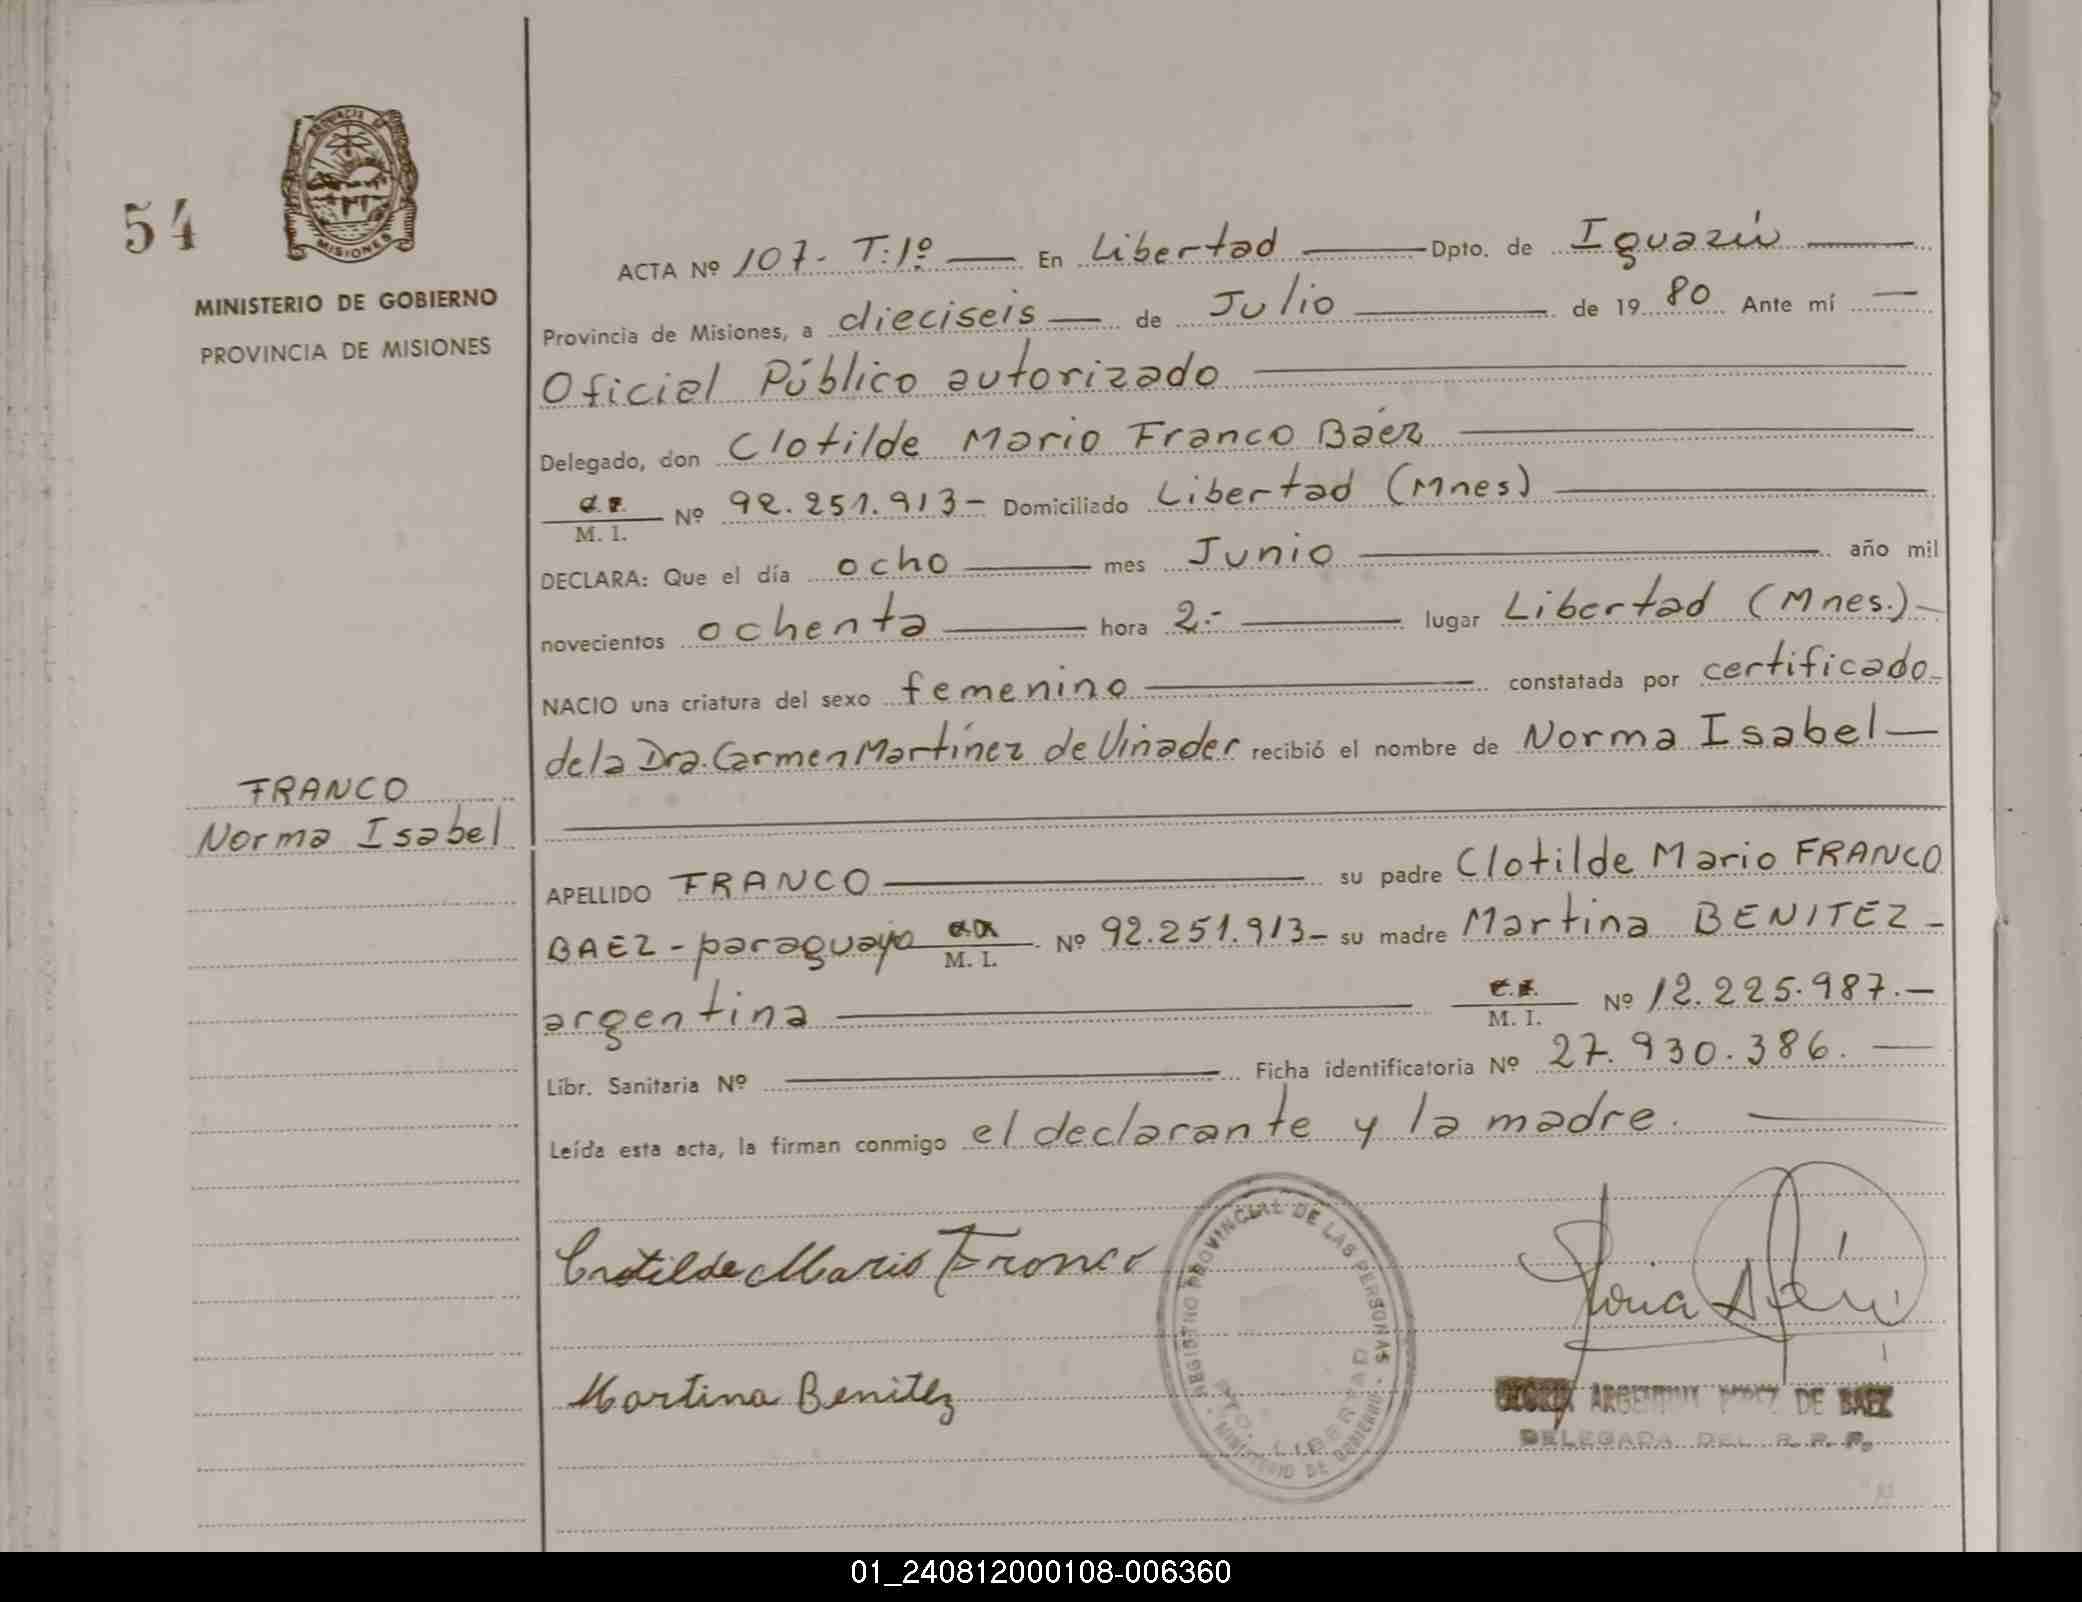 54
PROVINCIA DE
MISIONES
MINISTERIO DE GOBIERNO
PROVINCIA DE MISIONES
ACTA Nº 107- T:1º En Libertad Dpto. de Iguazú
Provincia de Misiones, a dieciseis de Julio de 1980 Ante mí
Oficial Público autorizado
Delegado, don Clotilde Mario Franco Báez
M. I. Nº 92.251.913- Domiciliado Libertad (Mnes)
DECLARA: Que el día ocho mes Junio año mil
novecientos ochenta hora 2.- lugar Libertad (Mnes.)-
NACIO una criatura del sexo femenino constatada por certificado
de la Dra. Carmen Martínez de Viñader recibió el nombre de Norma Isabel
FRANCO
Norma Isabel
APELLIDO FRANCO su padre Clotilde Mario FRANCO
BAEZ - paraguayo M. I. Nº 92.251.913- su madre Martina BENITEZ -
argentina M. I. Nº 12.225.987.-
Libr. Sanitaria Nº Ficha identificatoria Nº 27.930.386.
Leída esta acta, la firman conmigo el declarante y la madre.
Clotilde Mario Franco
Martina Benitez
REGISTRO PROVINCIAL DE LAS PERSONAS
PTO. LIBERTAD
MINISTERIO DE GOBIERNO
ARGENTINA PEREZ DE BAEZ
DELEGADA DEL R. P. P.
01_240812000108-006360